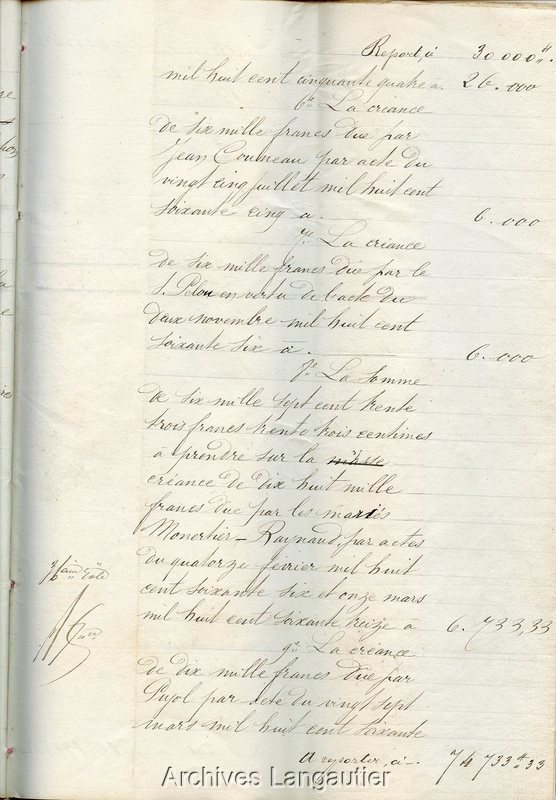 Report, à 30.000 "
mil huit cent cinquante quatre a. 26.000
6° La créance
de six mille francs due par
Jean Couneau par acte du
vingt cinq juillet mil huit cent
soixante cinq a. 6.000
7° La créance
de six mille francs due par le
S. Pelou en vertu de l'acte du
deux novembre mil huit cent
soixante six a. 6.000
8° La Somme
de six mille sept cent trente
trois francs trente trois centimes
a prendre sur la
créance de dix huit mille
francs due par les mariés
Monertier - Raynaud, par actes
du quatorze février mil huit
cent soixante six et onze mars
mil huit cent soixante treize a 6.733,33
9° La créance
de dix mille francs due par
Pujol par acte du vingt sept
mars mil huit cent soixante
A reporter, a 74733 33
Archives Langautier